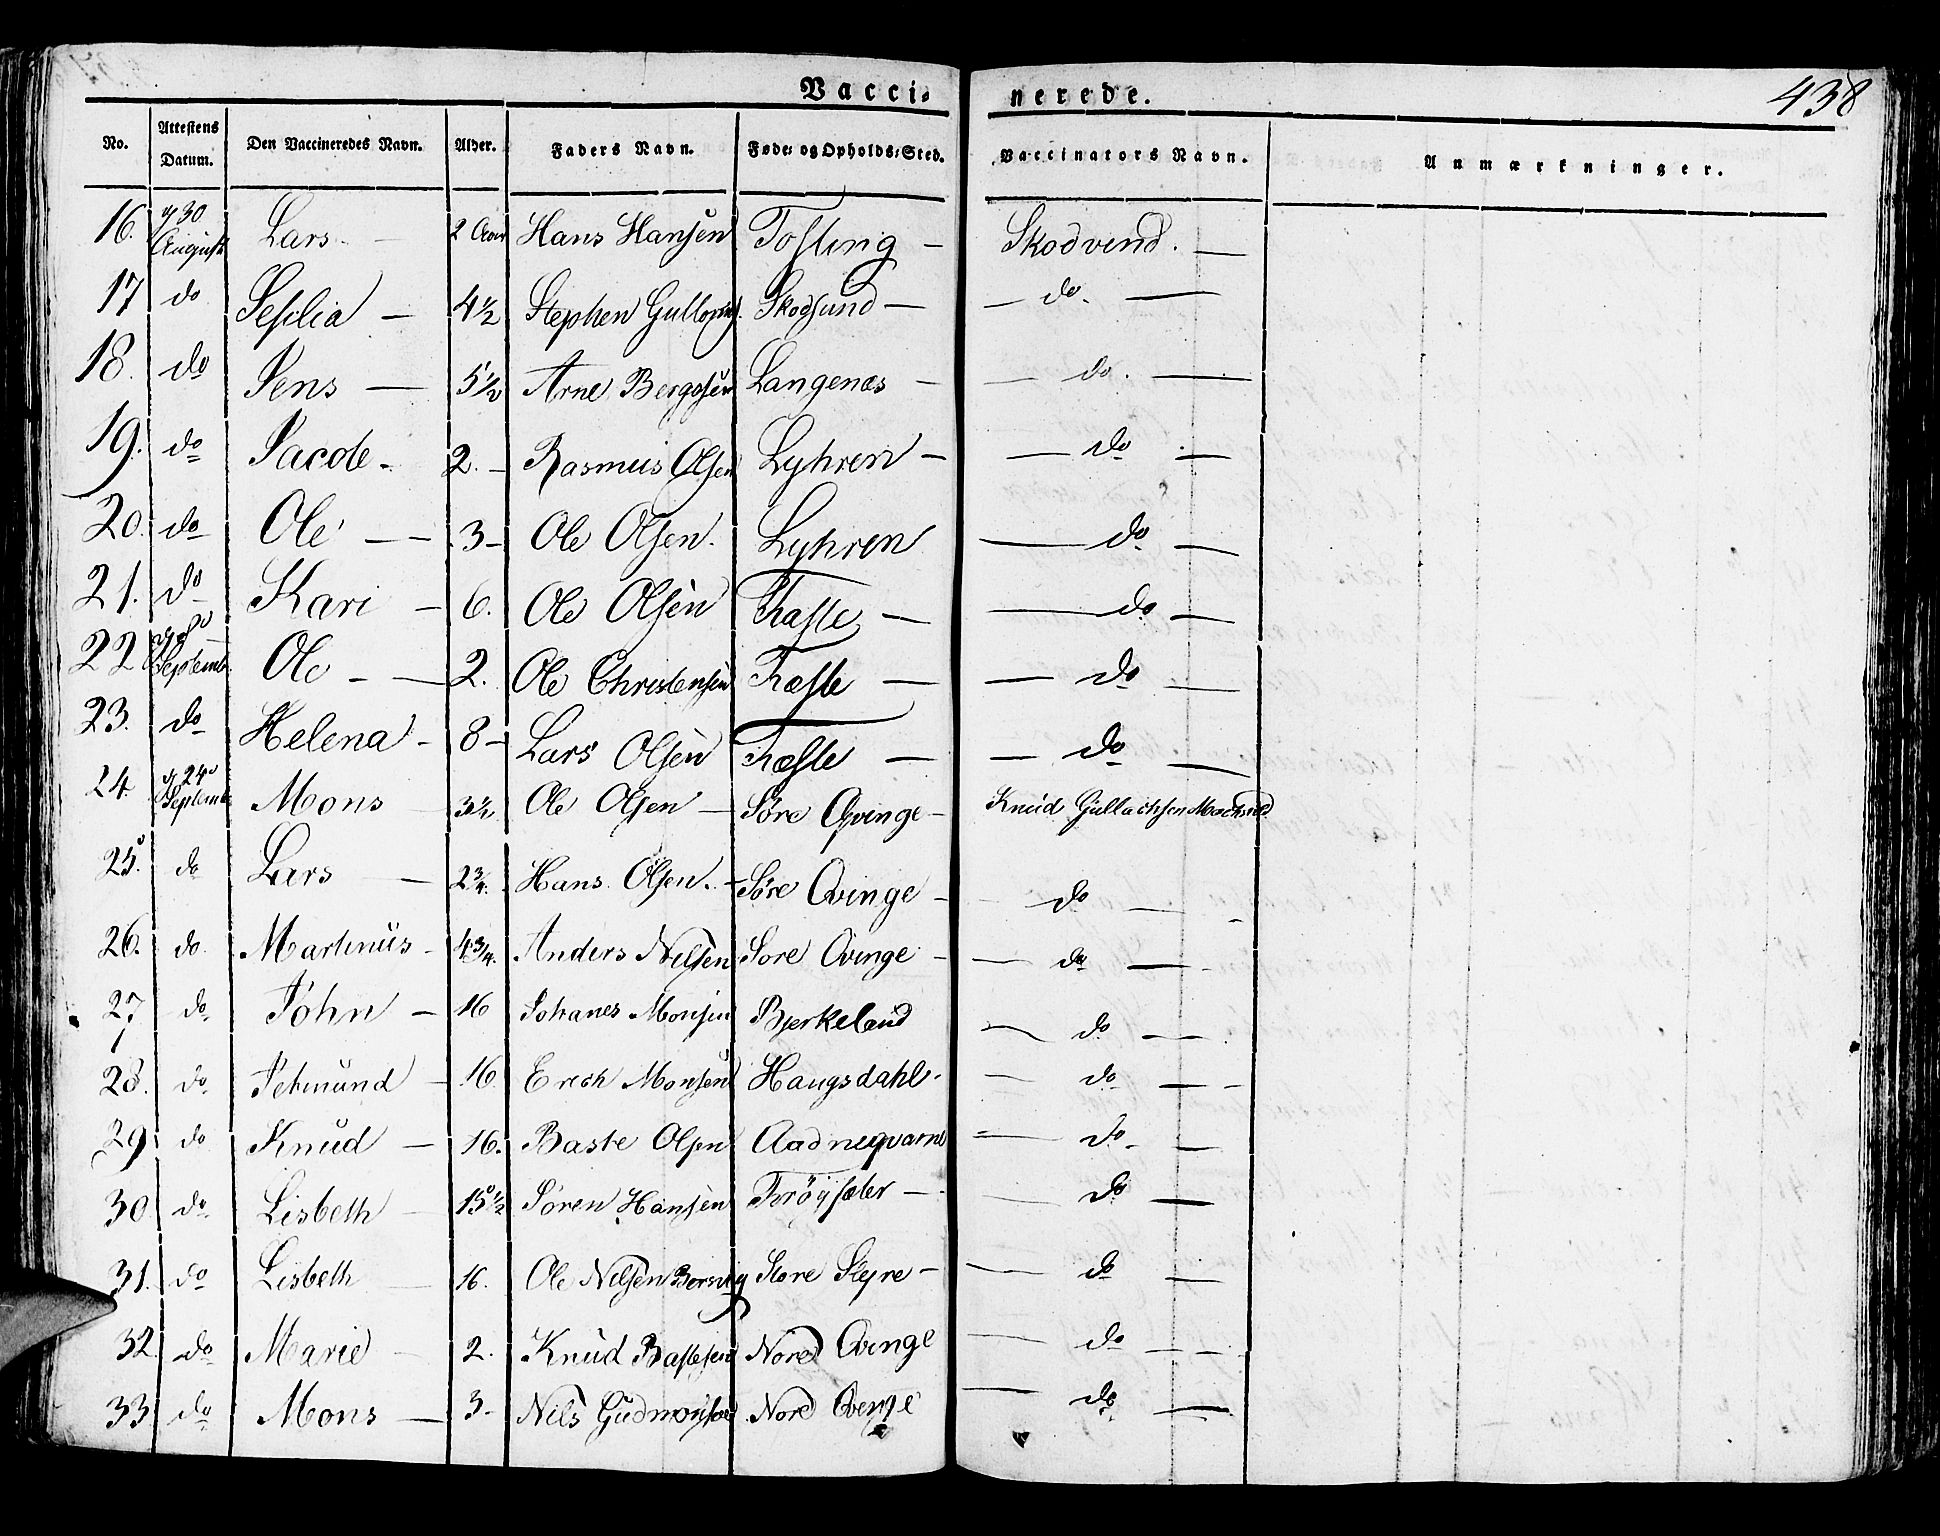 Vacci- nerede. 438
No. Attestens Datum. Den Vaccineredes Navn. Alder. Faders Navn. Føde- og Opholds-Sted. Vaccinators Navn. Anmærkninger.
16. 30 August Lars - 2 Aar Hans Hansen - Skodvend. -
17 do - 4 1/2 Stephen Skodsund - - do. -
18. do Jens - 5 1/2 Arne Langenæs - - do. -
19. do Jacob - 2. - Rasmus Olsen Lyhren - - do -
20. do Ole - 3 - Ole Olsen. Lyhren - do -
21. do Kari - 6. Ole Olsen - - do -
22 Septemb. Ole - 2. Ole Christensen - - do -
23. do Helena - 8 - Lars Olsen - - do -
24. 24 Septemb. Mons 3 1/2 Ole Olsen - Søre Qvinge - Knud Gullachsen
25. do Lars - 2 3/4. Hans Olsen. - Søre Qvinge - do -
26. do. Martinus - 4 3/4. Anders Nelsen Sore Qvinge - - do -
27 do John - 16 Johanes Monsen Bjerkeland - do -
28. do. - 16 Erich Monsen Haugsdahl. - do -
29 do Knud - 16. Baste Olsen - do. -
30 do. Lisbeth 15 1/2 Sören Hansen - - do -
31. do Lisbeth 16. Ole Nelsen Store - - do -
32 do Marie 2. Knud Bastesen Nore Qvinge - do -
33 do Mons - 3. Nils Nord Qvinge - do -